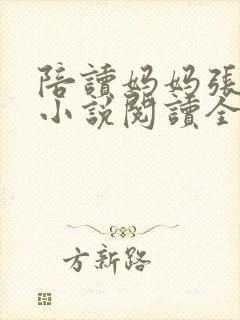 陪讀妈妈張
小說閱讀全
方新路